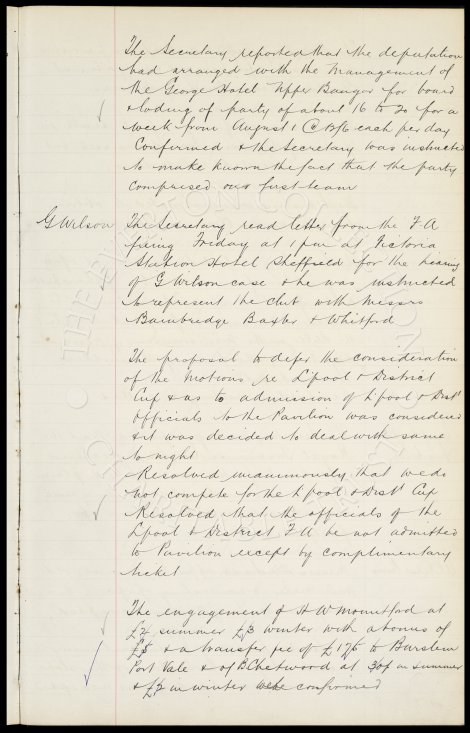 The Secretary reported that the deputation
had arranged with the Management of
the George Hotel Upper Bangor for board
& lodging of party of about 16 to 20 for a
week from August 1 @ 8/6 each per day
Confirmed & the Secretary was instructed
to make known the fact that the party
comprised our first team
G Wilson
The Secretary read letter from the F A
fixing Friday at 1 pm at Victoria
Station Hotel Sheffield for the hearing
of G Wilson case & he was instructed
to represent the club with Messrs
Bainbridge Baxter & Whitford
The proposal to defer the consideration
of the Motions re Lpool & District
Cup & as to admission of Lpool & Dist
Officials to the Pavilion was considered
& it was decided to deal with same
to night
Resolved unanimously that we do
not compete for the Lpool & Dist Cup
Resolved that the officials of the
Lpool & District F A be not admitted
to Pavilion except by complimentary
ticket
The engagement of H W Mountford at
£2 summer £3 winter with a bonus of
£5 & a transfer fee of £175 to Burslem
Port Vale & of B Chetwood at 30/- in summer
& £2 in winter were confirmed
THE EVERTON CO